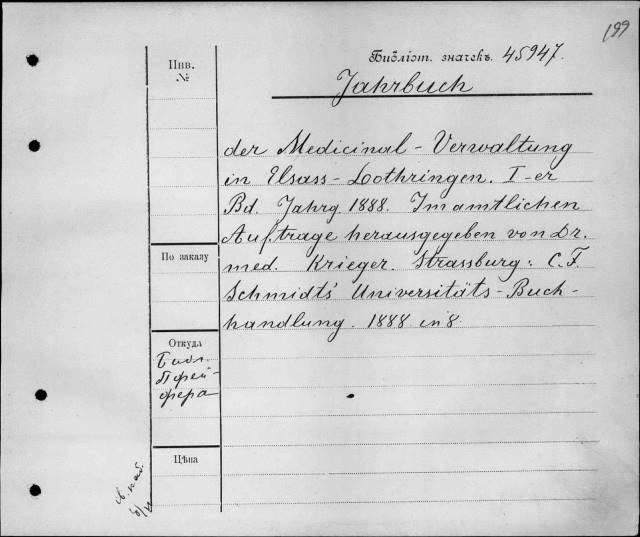 199
Библіот. значекъ. 45947.
Jahrbuch
der Medicinal-Verwaltung
in Elsass-Lothringen. I-er
Bd. Jahrg. 1888. Im amtlichen
Auftrage herausgegeben von Dr.
med. Krieger. Strassburg: C. F.
Schmidt's Universitäts-Buch-
handlung. 1888 in 8.
Инв.
№
По заказу
Откуда
Библ.
Пфей-
фера
Цѣна